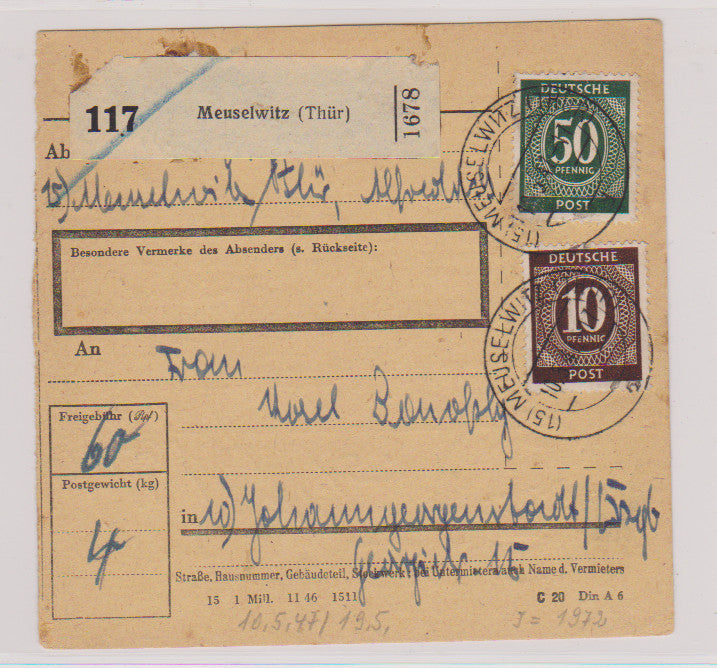 117 Meuselwitz (Thür) 1678
DEUTSCHE
50
PFENNIG
POST
(15) MEUSELWITZ
Ab
15) Meuselwitz / Thür,
Besondere Vermerke des Absenders (s. Rückseite):
DEUTSCHE
10
PFENNIG
POST
(15) MEUSELWITZ
An
Frau
Freigebühr (Rpf)
60
Postgewicht (kg)
4
in 10) Johanngeorgenstadt / Erzgb
15
Straße, Hausnummer, Gebäudeteil, Stockwerk; bei Untermietern auch Name d. Vermieters
15 1 Mill. 11 46 1511 C 20 Din A 6
10.5.47/19.5. J = 1972